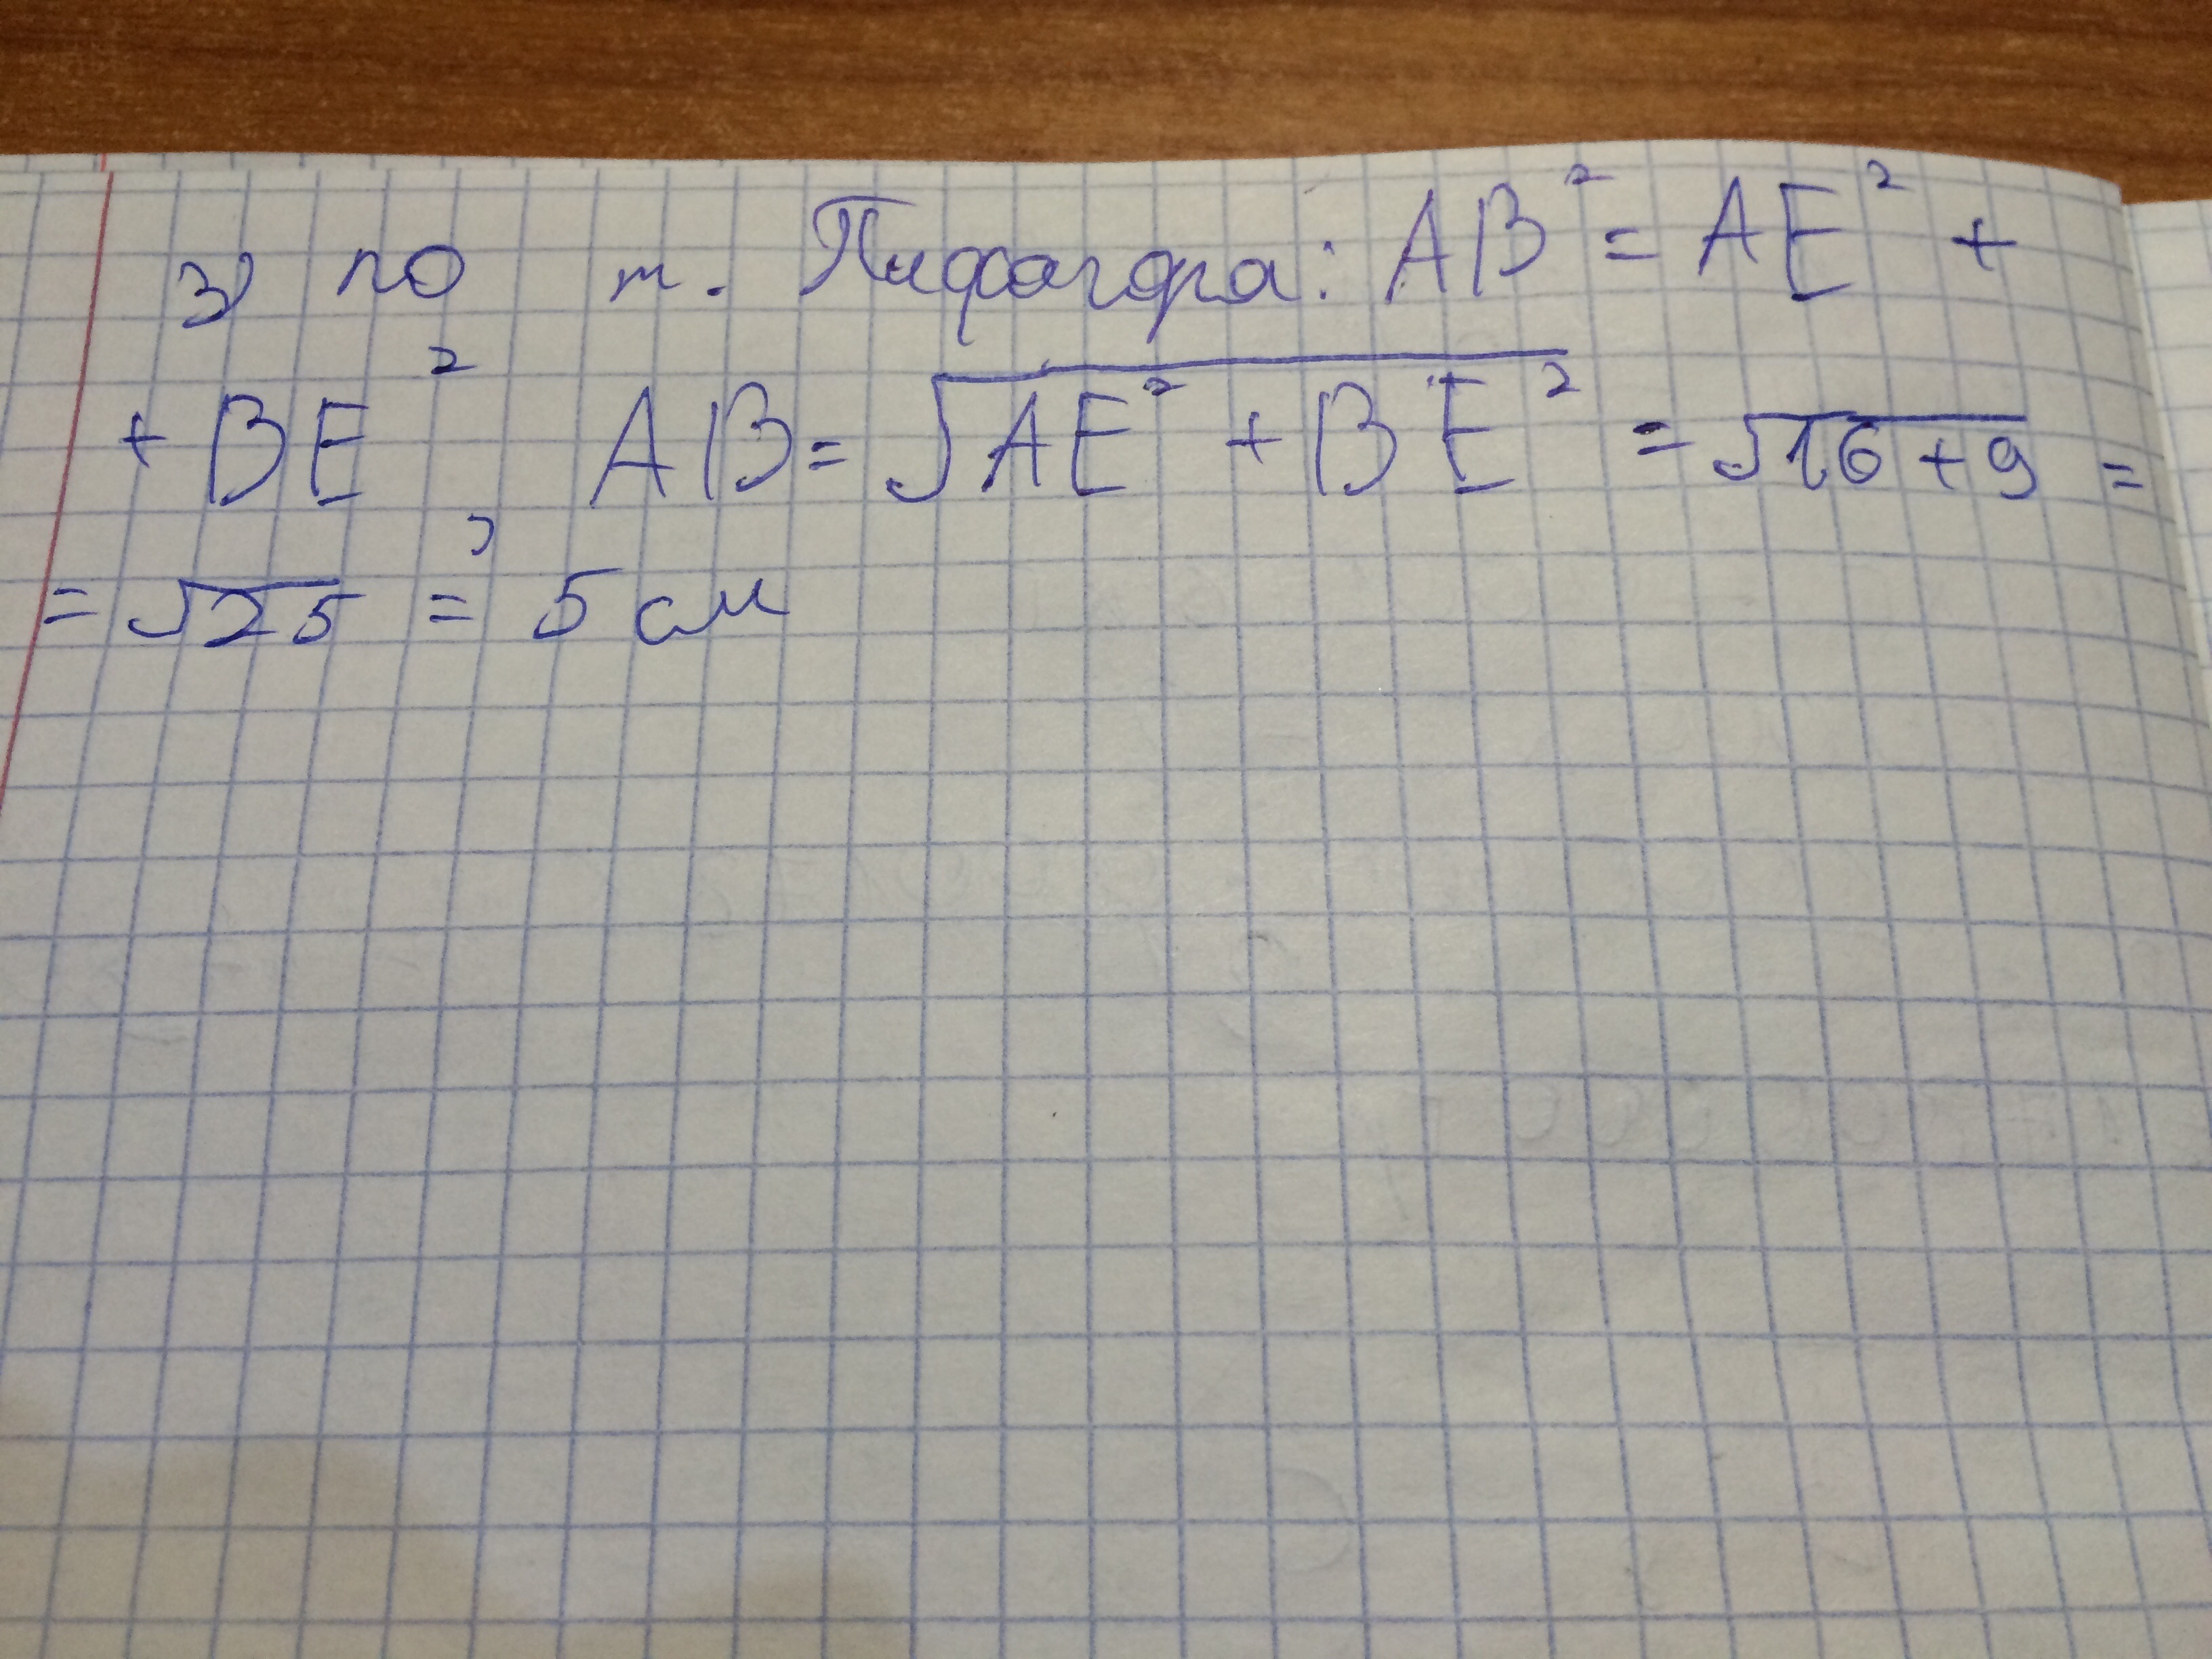 3) по т. Пифагора: AB² = AE² +
+ BE², AB = √AE² + BE² = √16 + 9 =
= √25 = 5 см